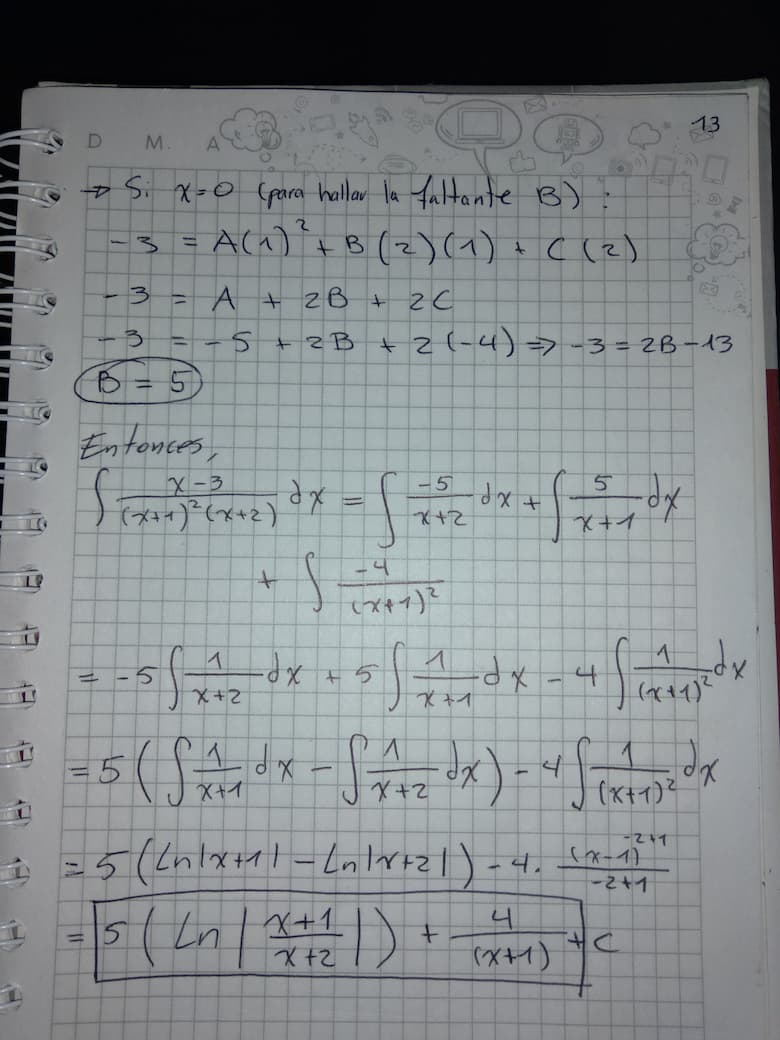 13
D M. A
→ Si x=0 (para hallar la faltante B) :
-3 = A(1)² + B(2)(1) + C(2)
-3 = A + 2B + 2C
-3 = -5 + 2B + 2(-4) ⇒ -3 = 2B-13
B = 5
Entonces,
∫ (x-3)/((x+1)²(x+2)) dx = ∫ -5/(x+2) dx + ∫ 5/(x+1) dx
+ ∫ -4/(x+1)²
= -5 ∫ 1/(x+2) dx + 5 ∫ 1/(x+1) dx - 4 ∫ 1/(x+1)² dx
= 5 ( ∫ 1/(x+1) dx - ∫ 1/(x+2) dx ) - 4 ∫ 1/(x+1)² dx
= 5 (Ln|x+1| - Ln|x+2|) - 4 · (x-1)^(-2+1)/(-2+1)
= 5 ( Ln | (x+1)/(x+2) | ) + 4/(x+1) + C